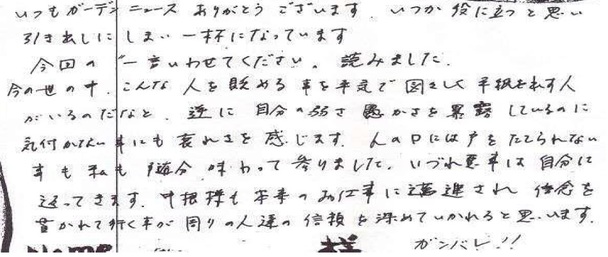 いつもガーデンニュースありがとうございます。いつか役に立つと思い
引き出しにしまい一杯になっています
今回の“一言いわせてください。読みました。
今の世の中、こんな人を貶める事を平気で図々しく手紙を出す人
がいるのだなと、逆に自分の弱さ愚かさを暴露しているのに
気付かない事にも哀れさを感じます。人の口には戸をたてられない
事も私も随分味わって参りました。いづれ悪事は自分に
返ってきます。中根様も本来のお仕事に邁進され信念を
貫かれて行く事が周りの人達の信頼を深めていかれると思います。
Name 様 ガンバレ!!